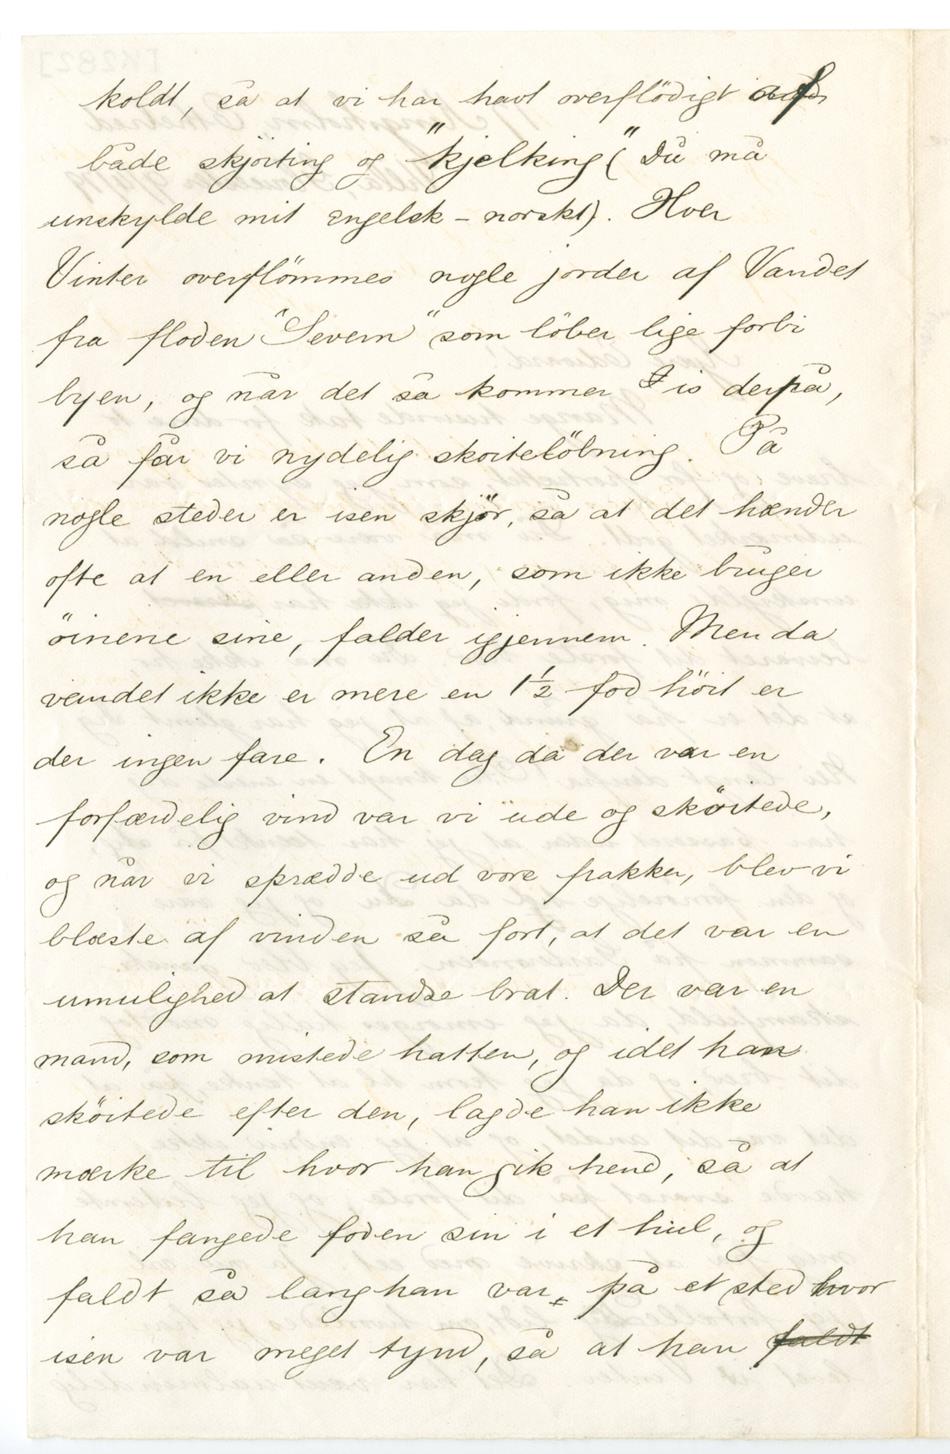 koldt, så at vi har havt overflödigt af
både skjöiting og "kjelking" (Du må
unskylde mit engelsk - norskt). Hver
Vinter overflömmes nogle jorder af Vandet
fra floden "Severn" som löber lige forbi
byen, og når det så kommer is derpå,
så får vi nydelig skoitelöbning. På
nogle steder er isen skjör, så at det hænder
ofte at en eller anden, som ikke bruger
öinene sine, falder igjennem. Men da
vandet ikke er mere en 1½ fod höit er
der ingen fare. En dag da der var en
forfærdelig vind var vi ude og sköitede,
og når vi sprædde ud vore frakker, blev vi
blæste af vinden så fort, at det var en
umulighed at standse brat. Der var en
mand, som mistede hatten, og idet han
sköitede efter den, lagde han ikke
mærke til hvor han gik hend, så at
han fangede foden sin i et hul, og
faldt så lang han var, på et sted hvor
isen var meget tynd, så at han faldt